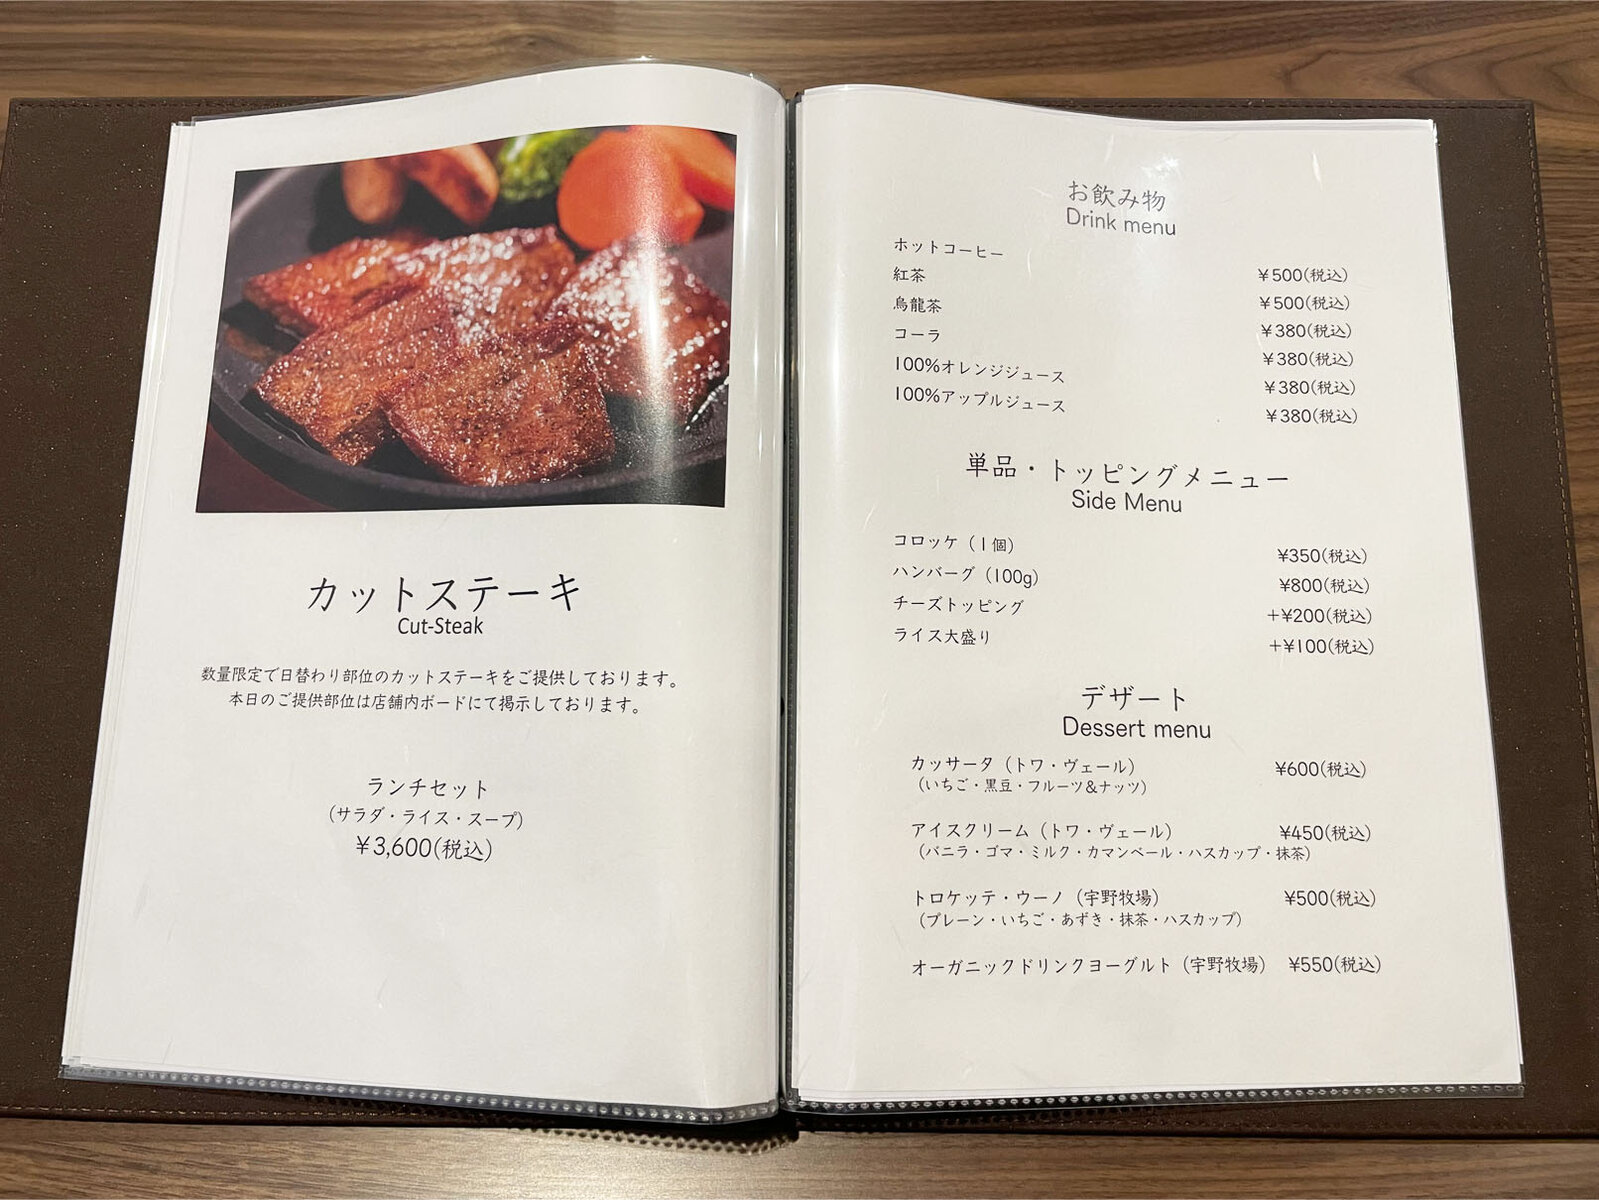 カットステーキ
Cut-Steak
数量限定で日替わり部位のカットステーキをご提供しております。
本日のご提供部位は店舗内ボードにて掲示しております。
ランチセット
(サラダ・ライス・スープ)
￥3,600(税込)
お飲み物
Drink menu
ホットコーヒー ￥500(税込)
紅茶 ￥500(税込)
烏龍茶 ￥380(税込)
コーラ ￥380(税込)
100%オレンジジュース ￥380(税込)
100%アップルジュース ￥380(税込)
単品・トッピングメニュー
Side Menu
コロッケ（1個） ¥350(税込)
ハンバーグ（100g） ¥800(税込)
チーズトッピング +¥200(税込)
ライス大盛り +¥100(税込)
デザート
Dessert menu
カッサータ（トワ・ヴェール） ¥600(税込)
（いちご・黒豆・フルーツ&ナッツ）
アイスクリーム（トワ・ヴェール） ¥450(税込)
（バニラ・ゴマ・ミルク・カマンベール・ハスカップ・抹茶）
トロケッテ・ウーノ（宇野牧場） ¥500(税込)
（プレーン・いちご・あずき・抹茶・ハスカップ）
オーガニックドリンクヨーグルト（宇野牧場） ¥550(税込)